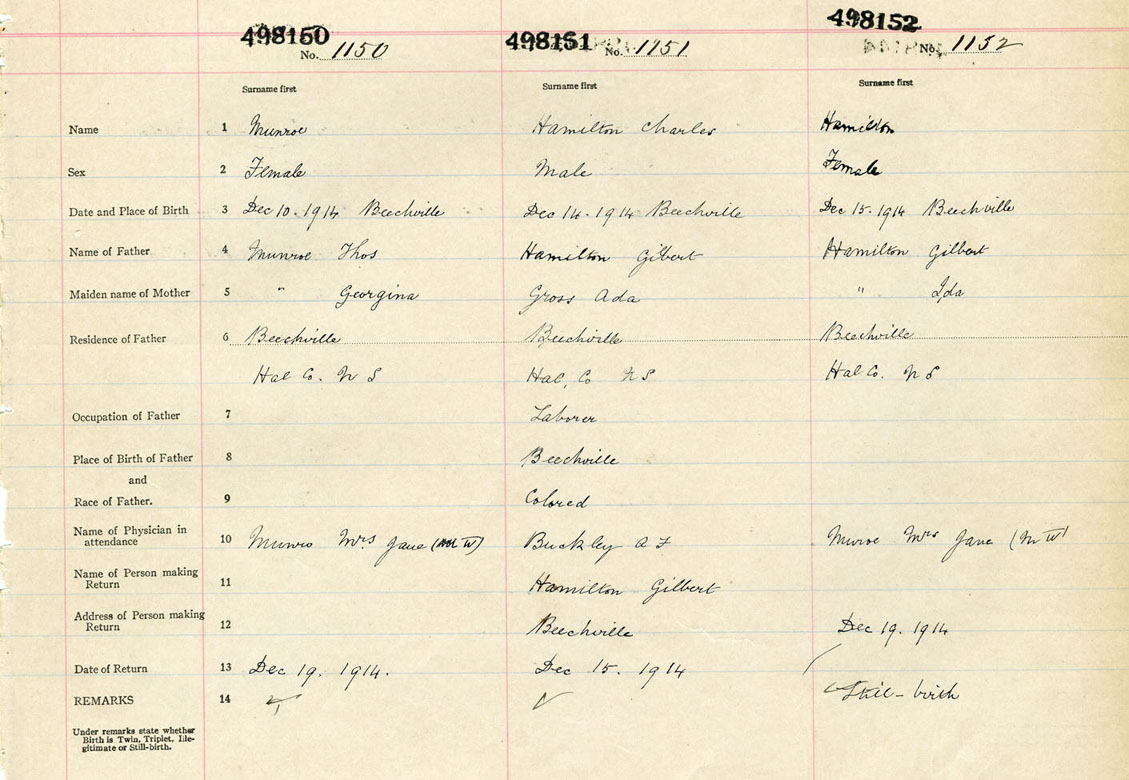 498150 498151 498152
No. 1150 No. 1151 No. 1152
Surname first Surname first Surname first
Name 1 Munroe Hamilton Charles Hamilton
Sex 2 Female Male Female
Date and Place of Birth 3 Dec 10. 1914 Beechville Dec 14. 1914 Beechville Dec 15. 1914 Beechville
Name of Father 4 Munroe Thos Hamilton Gilbert Hamilton Gilbert
Maiden name of Mother 5 " Georgina Gross Ada " Ida
Residence of Father 6 Beechville Beechville Beechville
Hal Co. N S Hal, Co N S Hal Co. N S
Occupation of Father 7 Laborer
Place of Birth of Father 8 Beechville
and
Race of Father. 9 Colored
Name of Physician in
attendance 10 Munro Mrs Jane (M W) Buckley A F Munroe Mrs Jane (M W)
Name of Person making
Return 11 Hamilton Gilbert
Address of Person making
Return 12 Beechville Dec 19. 1914
Date of Return 13 Dec 19. 1914. Dec 15. 1914
REMARKS 14 Still-birth
Under remarks state whether
Birth is Twin, Triplet, Ille-
gitimate or Still-birth.